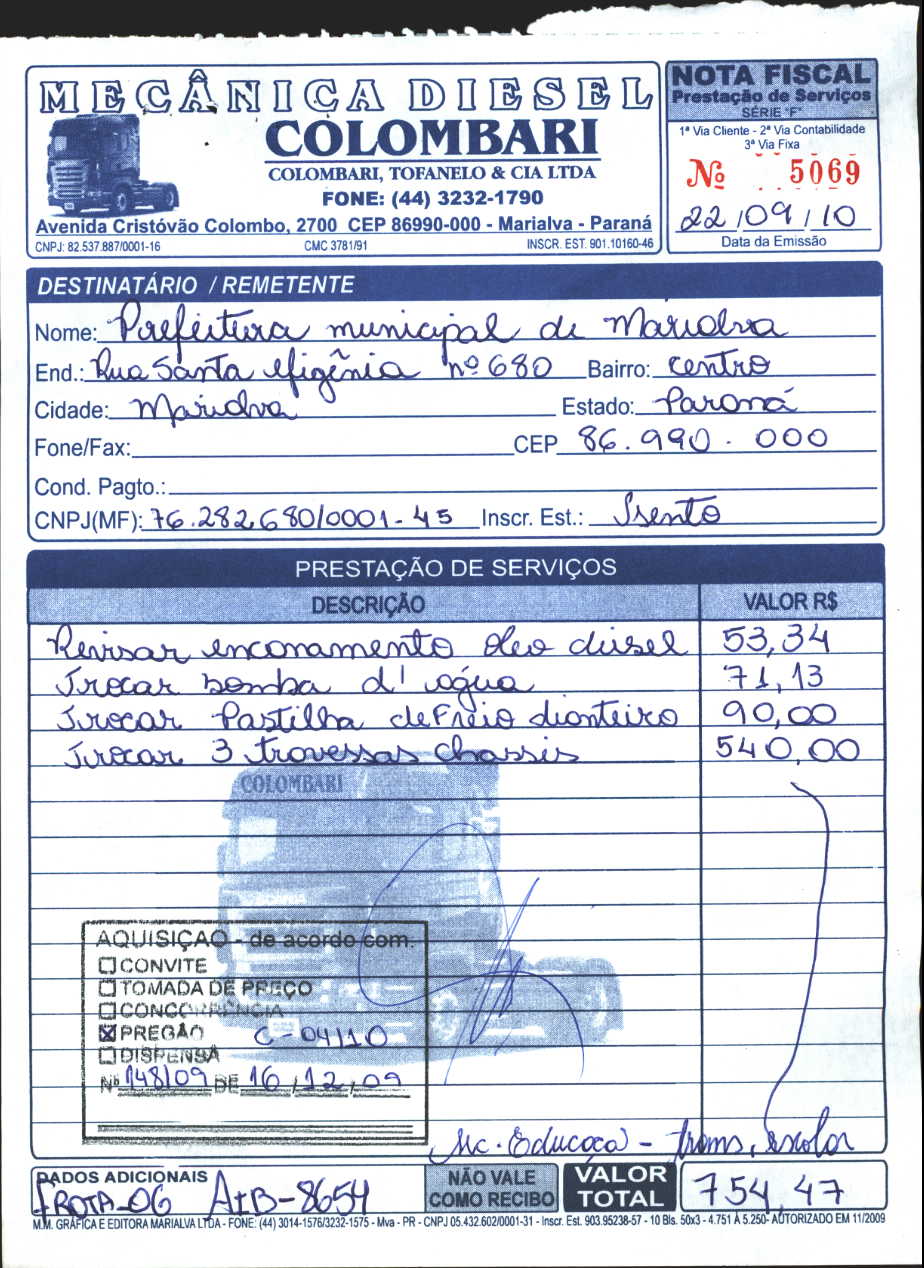 MECÂNICA DIESEL
COLOMBARI
COLOMBARI, TOFANELO & CIA LTDA
FONE: (44) 3232-1790
Avenida Cristóvão Colombo, 2700 CEP 86990-000 - Marialva - Paraná
CNPJ: 82.537.887/0001-16 CMC 3781/91 INSCR. EST. 901.10160-46
NOTA FISCAL
Prestação de Serviços
SÉRIE "F"
1ª Via Cliente - 2ª Via Contabilidade
3ª Via Fixa
Nº 5069
22/09/10
Data da Emissão
DESTINATÁRIO / REMETENTE
Nome: Prefeitura municipal de Marialva
End.: Rua Santa efigênia nº 680 Bairro: centro
Cidade: Marialva Estado: Paraná
Fone/Fax: CEP 86.990.000
Cond. Pagto.:
CNPJ(MF): 76.282.680/0001-45 Inscr. Est.: Isento
PRESTAÇÃO DE SERVIÇOS
DESCRIÇÃO VALOR R$
Revisar encanamento óleo diesel 53,34
Trocar bomba d' água 71,13
Trocar Pastilha de Freio dianteiro 90,00
Trocar 3 travessas chassis 540,00
COLOMBARI
AQUISIÇÃO - de acordo com.
CONVITE
TOMADA DE PREÇO
CONCORRÊNCIA
PREGÃO C-04/10
DISPENSA
Nº 148/09 DE 16/12/09
Educaça - trans. escolar
DADOS ADICIONAIS
FROTA-06 AIB-8654
NÃO VALE
COMO RECIBO
VALOR
TOTAL
754,47
M.M. GRÁFICA E EDITORA MARIALVA LTDA - FONE: (44) 3014-1576/3232-1575 - Mva - PR - CNPJ 05.432.602/0001-31 - Inscr. Est. 903.95238-57 - 10 Bls. 50x3 - 4.751 A 5.250- AUTORIZADO EM 11/2009